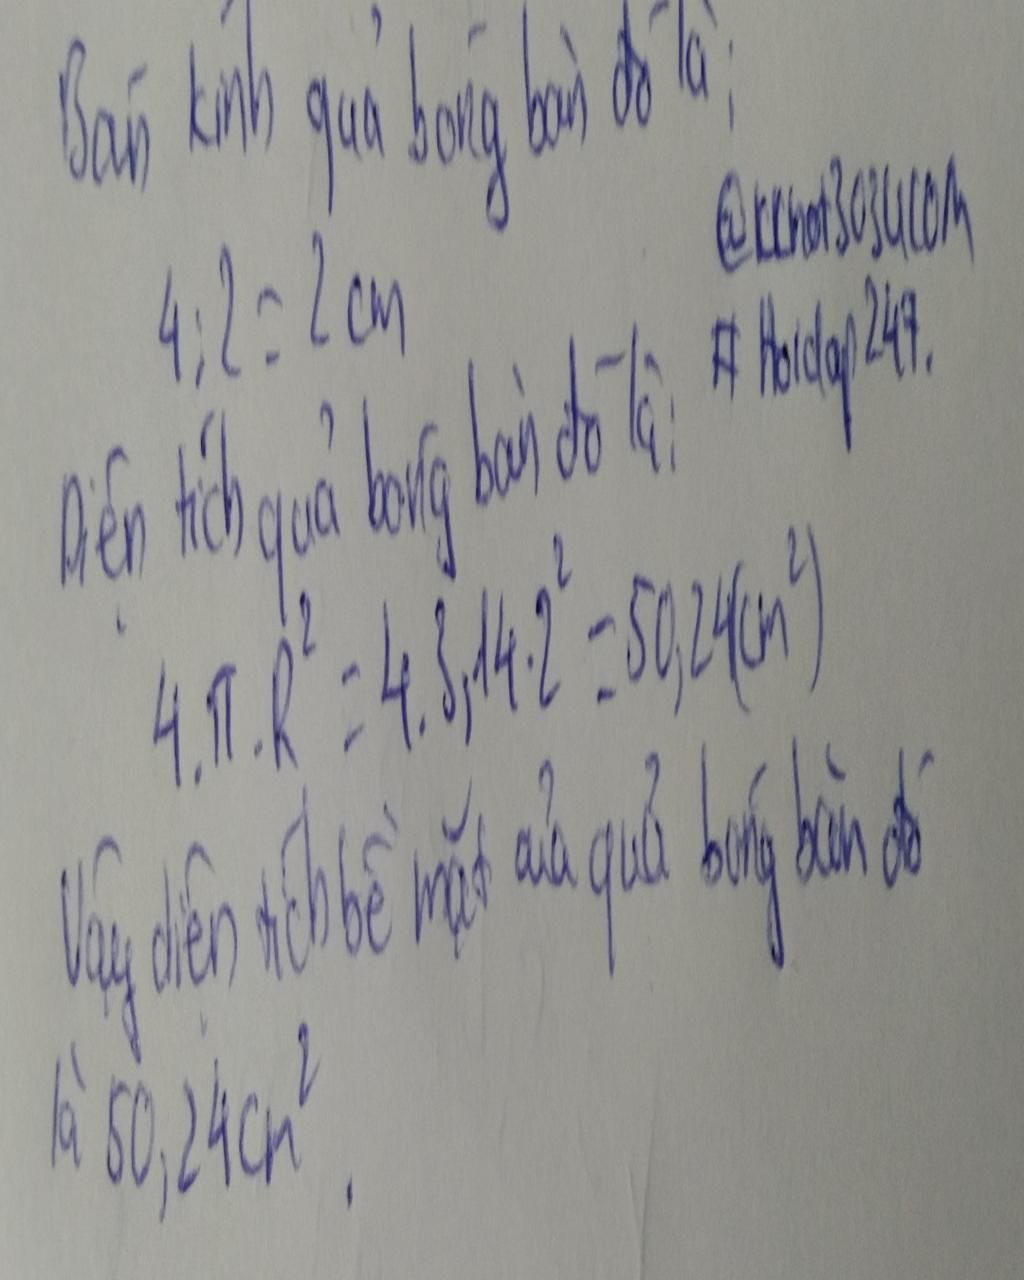 Bán kính quả bóng bàn đó là:
4:2=2cm
@kkhot3034COM
# Hoidap247.
Diện tích quả bóng bàn đó là:
4.π.R² = 4.3,14.2² = 50,24(cm²)
Vậy diện tích bề mặt của quả bóng bàn đó
là 50,24cm².